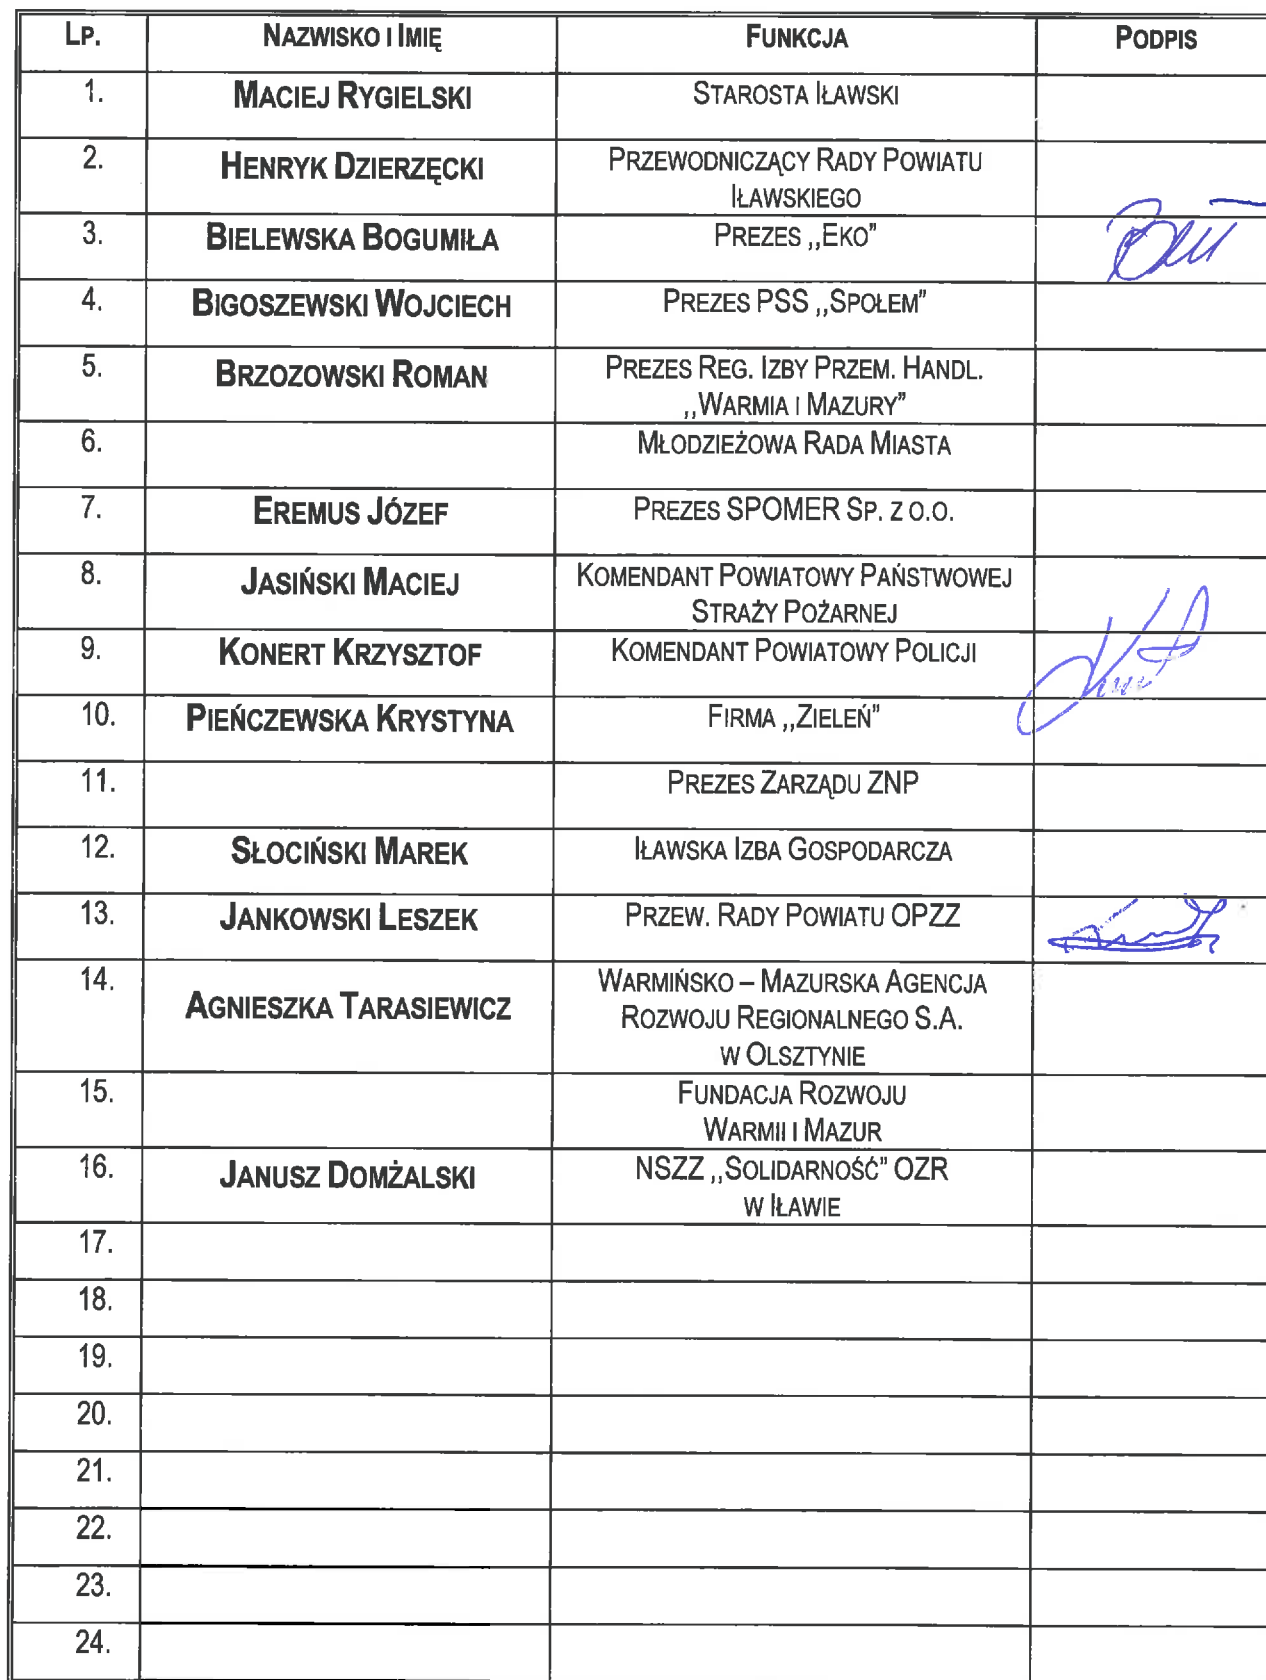 LP. NAZWISKO I IMIĘ FUNKCJA PODPIS
1. MACIEJ RYGIELSKI STAROSTA IŁAWSKI
2. HENRYK DZIERZĘCKI PRZEWODNICZĄCY RADY POWIATU
IŁAWSKIEGO
3. BIELEWSKA BOGUMIŁA PREZES ,,EKO"
4. BIGOSZEWSKI WOJCIECH PREZES PSS ,,SPOŁEM"
5. BRZOZOWSKI ROMAN PREZES REG. IZBY PRZEM. HANDL.
,,WARMIA I MAZURY"
6. MŁODZIEŻOWA RADA MIASTA
7. EREMUS JÓZEF PREZES SPOMER SP. Z O.O.
8. JASIŃSKI MACIEJ KOMENDANT POWIATOWY PAŃSTWOWEJ
STRAŻY POŻARNEJ
9. KONERT KRZYSZTOF KOMENDANT POWIATOWY POLICJI
10. PIEŃCZEWSKA KRYSTYNA FIRMA ,,ZIELEŃ"
11. PREZES ZARZĄDU ZNP
12. SŁOCIŃSKI MAREK IŁAWSKA IZBA GOSPODARCZA
13. JANKOWSKI LESZEK PRZEW. RADY POWIATU OPZZ
14. AGNIESZKA TARASIEWICZ WARMIŃSKO – MAZURSKA AGENCJA
ROZWOJU REGIONALNEGO S.A.
W OLSZTYNIE
15. FUNDACJA ROZWOJU
WARMII I MAZUR
16. JANUSZ DOMŻALSKI NSZZ ,,SOLIDARNOŚĆ" OZR
W IŁAWIE
17.
18.
19.
20.
21.
22.
23.
24.